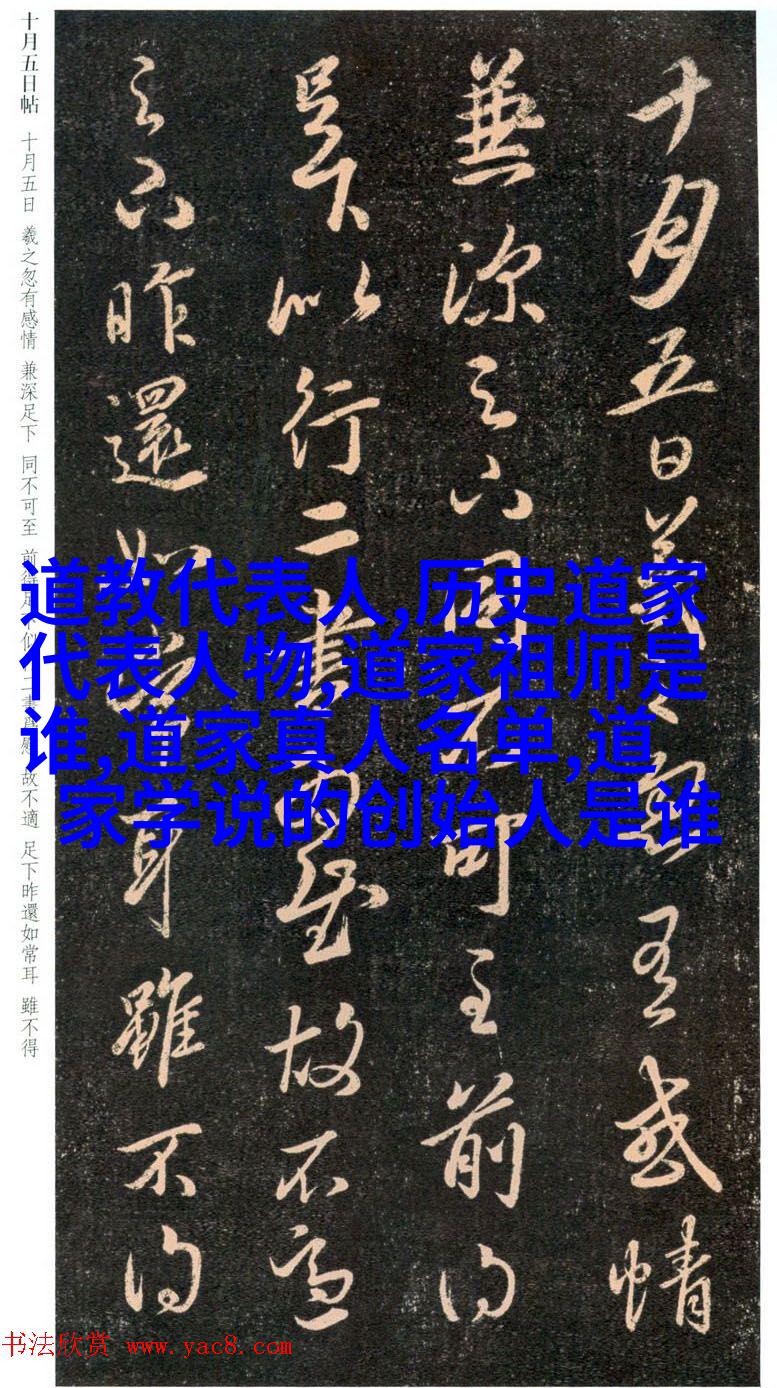 十月五日帖 十月五日 羲之忽有感情 兼深足下 同不可至 前得足下似 二書爲慰 故不適 足下昨還如常耳 雖不得
十月五日羲之忽有感情
兼深足下同不可至前得
足下昨還如常耳雖不得
道教代表人,历史道家
代表人物,道家祖师是
谁,道家真人名单,道
家学说的创始人是谁
书法欣赏 www.yac8.com